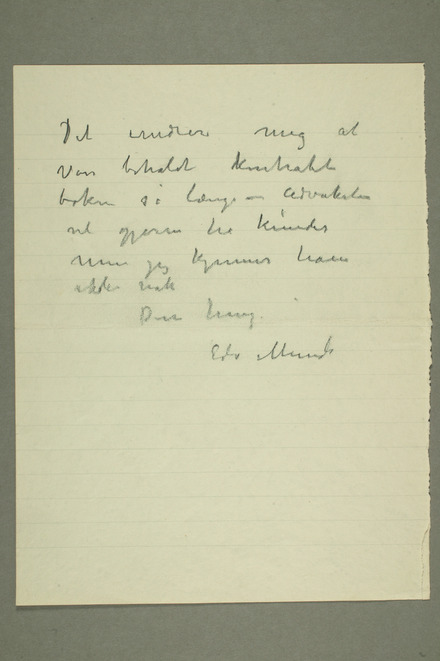 Det undrer mig at
Von beholdt kontrakt
boken så længe – Advokaten
vil gjerne ha
men jeg kjenner ham
ikke nok
Din heng.
Edv Munch